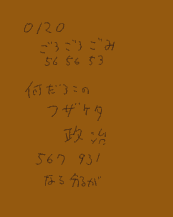 0120
ごろごろごみ
56 56 53
何だろこの
フザケタ
政治
567 931
なら分るが